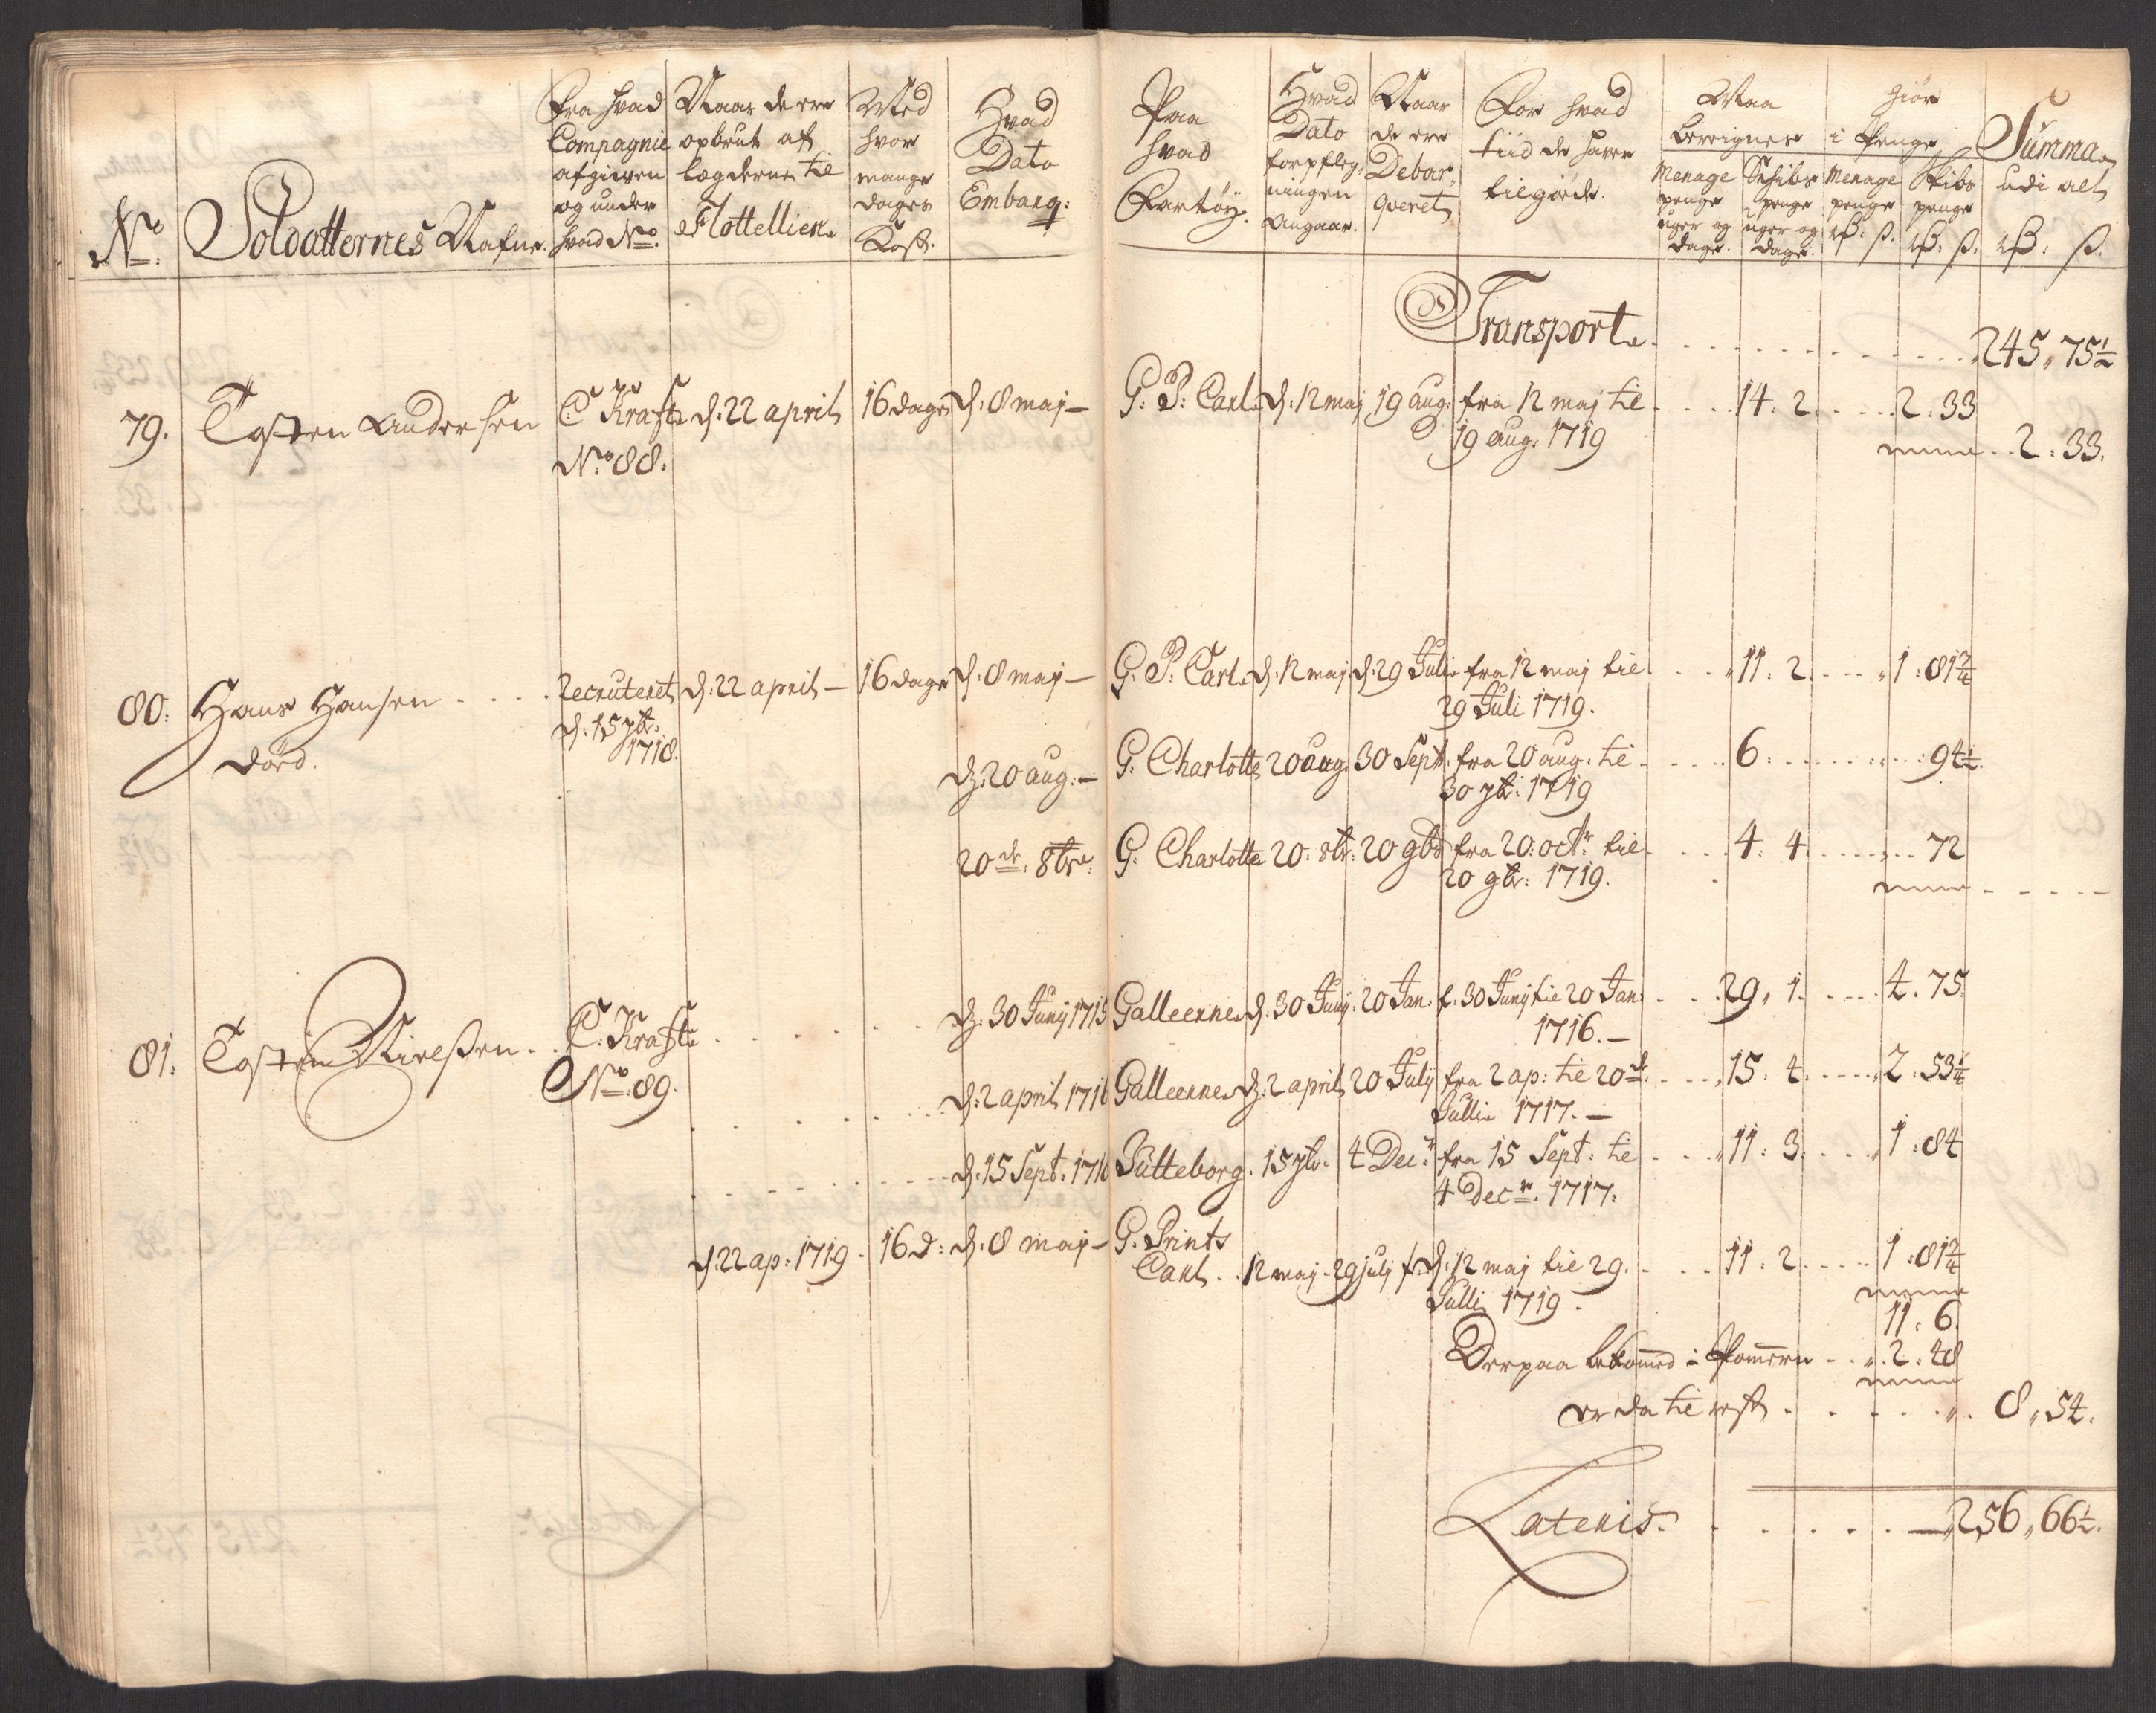 No:
Soldatternes Nafne.
Fra hvad
Compagnie
afgiven
og under
hvad No.
Naar de ere
opbrut af
lægderne til
Flottellien
Med
hvor
mange
dages
Kost.
Hvad
Dato
Embarq:
Paa
hvad
Fartöy.
Hvad
Dato
forpfleg-
ningen
Angaar.
Naar
de ere
Debar-
queret
For hvad
tiid de haver
tilgode.
Maa
bereignes
Menage
penge
uger og
dage.
Schibs
penge
uger og
dage.
giör
i Penge
Menage
penge
rß: ß.
Skibs
penge
rß: ß:
Summa
udi alt
rß: ß.
Transport 245 „ 75½
79. Tosten Andersen C Kraft d: 22 april 16 dages d: 8 maj — G: P: Carl d: 12 maj 19 aug: fra 12 maj til 14: 2 2: 33
No 88. 19 aug: 1719 2: 33.
80: Hans Hansen Recruteret d: 22 april — 16 dage d: 8 maj — G. P: Carl d: 12 maj d: 29 Juli fra 12 maj til 11: 2 1: 81¾
d: 15 7br: 29 Juli 1719.
död. 1718.
d: 20 aug: — G: Charlotte 20 aug: 30 Sept: fra 20 aug: til 6: 94½.
30 7br: 1719
20de: 8br: G: Charlotte 20: 8br: 20 9br fra 20: octr til 4: 4 72
20 9br: 1719.
81: Tosten Nielßen C: Kraft d: 30 Junij 1715 Galleerne d: 30 Junij: 20 Jan: f: 30 Junij til 20 Jan: 29 „ 1 4. 75.
No: 89. 1716. —
d: 2 april 1716 Galleerne d: 2 april 20 July fra 2 ap: til 20de 15: 4 2: 53¼
Julli 1717. —
d: 15 Sept: 1716 Jütteborg. 15 7br: 4 Decr: fra 15 Sept: til 11: 3 1: 84
4 Decr. 1717:
d: 22 ap: 1719 16 d: d: 8 maj — G. Prints
Carl 12 maj 29 julj fr: d: 12 maj til 29. 11: 2 1: 81¾
Julli 1719.
11: 6.
Derpaa bekommed i Pommern 2: 48
er da til rest 8 „ 54.
Lateris. 256 „ 66½.